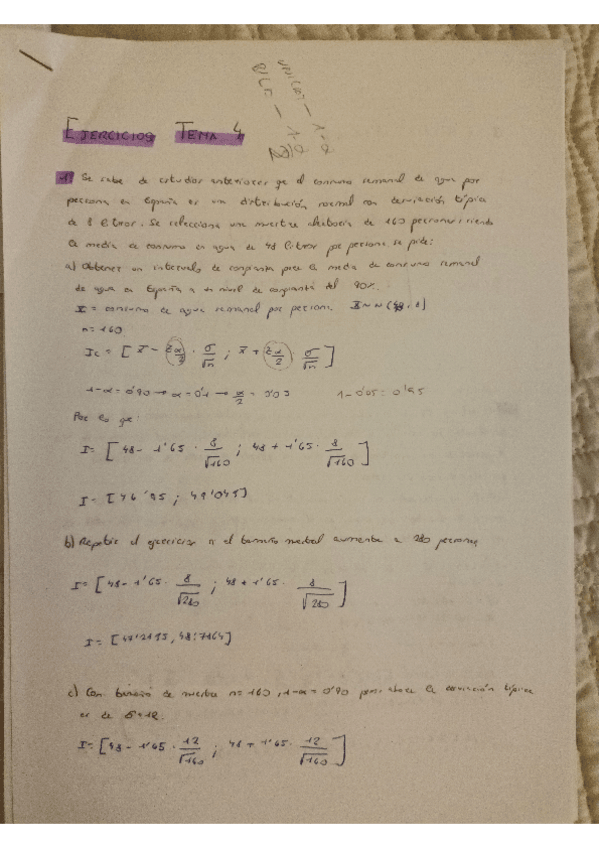 EJERCICIOS TEMA 4
1) Se sabe de estudios anteriores qe el consumo semanal de agua por
persona en España es un distribución normal con desviación típica
de 8 litros. Se selecciona una muestra aleatoria de 160 personas siendo
la media de consumo en agua de 48 litros por persona, se pide:
a) Obtener un intervalo de confianza para la media de consumo semanal
de agua en España a un nivel de confianza del 90%.
X = consumo de agua semanal por persona. X ~ N (48, 8)
n = 160
Ic = [ x̄ - z α/2 · σ/√n ; x̄ + z α/2 · σ/√n ]
1-α = 0'90 → α = 0'1 → α/2 = 0'05 1-0'05 = 0'95
Por lo qe:
I = [ 48 - 1'65 · 8/√160 ; 48 + 1'65 · 8/√160 ]
I = [46'95 ; 49'045]
b) Repetir el ejercicio si el tamaño muestral aumenta a 280 personas
I = [ 48 - 1'65 · 8/√280 ; 48 + 1'65 · 8/√280 ]
I = [47'2
c) Con tamaño de muestra n = 160, 1-α = 0'90 pero ahora la desviación típica
es de σ = 12.
I = [ 48 - 1'65 · 12/√160 ; 48 + 1'65 · 12/√160 ]